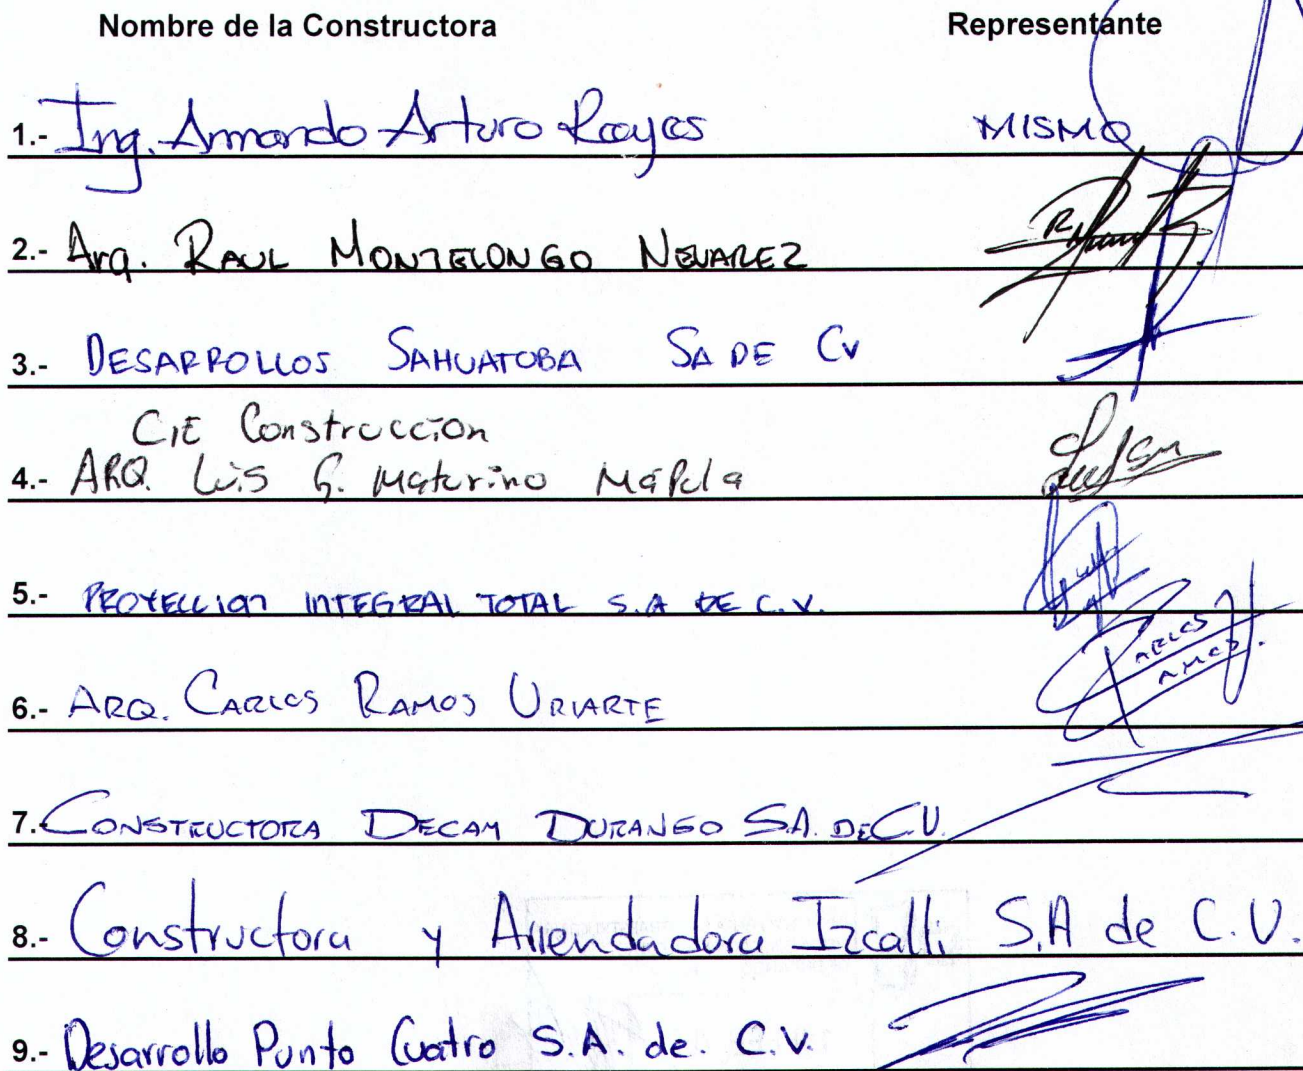 Nombre de la Constructora Representante
1.- Ing. Armando Arturo Reayes MISMO
2.- Arq. RAUL MONTELONGO NEVAREZ
3.- DESARROLLOS SAHUATOBA SA DE CV
CIE Construccion
4.- ARQ. Luis G. Maturino
5.- PROYECCION INTEGRAL TOTAL S.A DE C.V.
6.- ARQ. CARLOS RAMOS URIARTE CARLOS RAMOS
7.- CONSTRUCTORA DECAM DURANGO S.A. DE C.V.
8.- Constructora y Arrendadora Izcalli S.A de C.V.
9.- Desarrollo Punto Cuatro S.A. de. C.V.